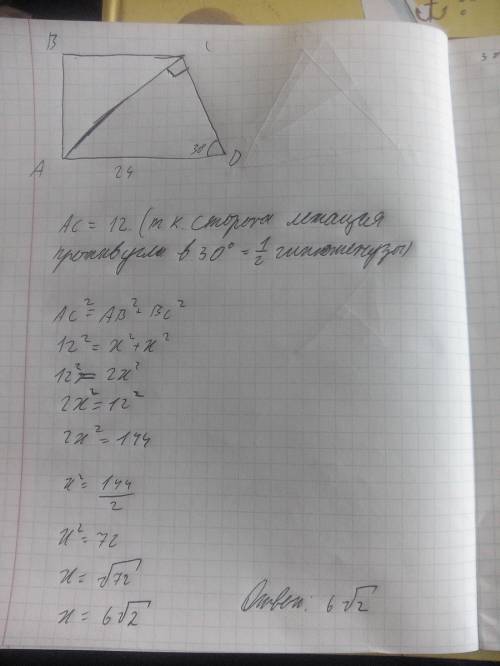 B C
A D
30°
24
AC = 12. (т к. сторона лежащая
против угла в 30° = 1/2 гипотенузы)
AC² = AB² + BC²
12² = x² + x²
12² = 2x²
2x² = 12²
2x² = 144
x² = 144/2
x² = 72
x = √72
x = 6√2
Ответ: 6√2